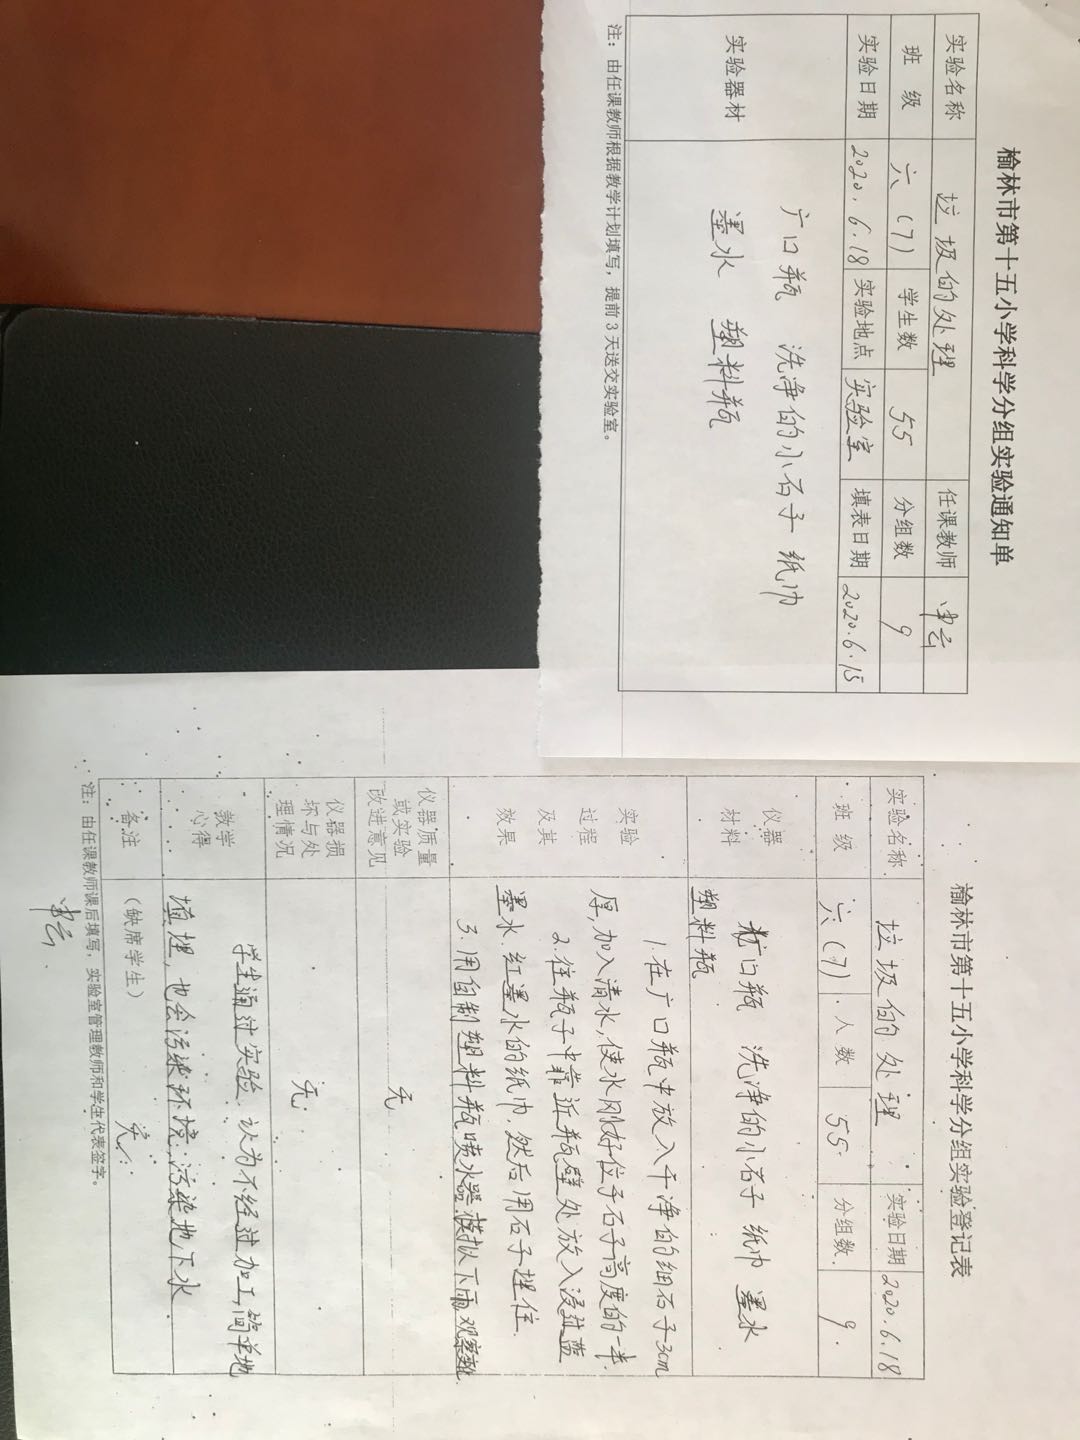 榆林市第十五小学科学分组实验通知单
实验名称 垃圾的处理 任课教师 申云
班 级 六(7) 学生数 55 分组数 9
实验日期 2020.6.18 实验地点 实验室 填表日期 2020.6.15
实验器材 广口瓶 洗净的小石子 纸巾
墨水 塑料瓶
注：由任课教师根据教学计划填写，提前3天送交实验室。
榆林市第十五小学科学分组实验登记表
实验名称 垃圾的处理 实验日期 2020.6.18
班 级 六(7) 人 数 55 分组数 9
仪器
材料
广口瓶 洗净的小石子 纸巾 墨水
塑料瓶
实验
过程
及其
效果
1.在广口瓶中放入干净的细石子3cm
厚,加入清水,使水刚好位于石子高度的一半.
2.往瓶子中靠近瓶壁处放入浸过蓝
墨水.红墨水的纸巾.然后用石子埋住.
3.用自制塑料瓶喷水器,模拟下雨,观察
仪器质量
或实验
改进意见
无
仪器损
坏与处
理情况
无.
教学
心得
学生通过实验,认为不经过加工,简单地
填埋,也会污染环境,污染地下水.
备注 (缺席学生) 无.
注：由任课教师课后填写，实验室管理教师和学生代表签字。
申云